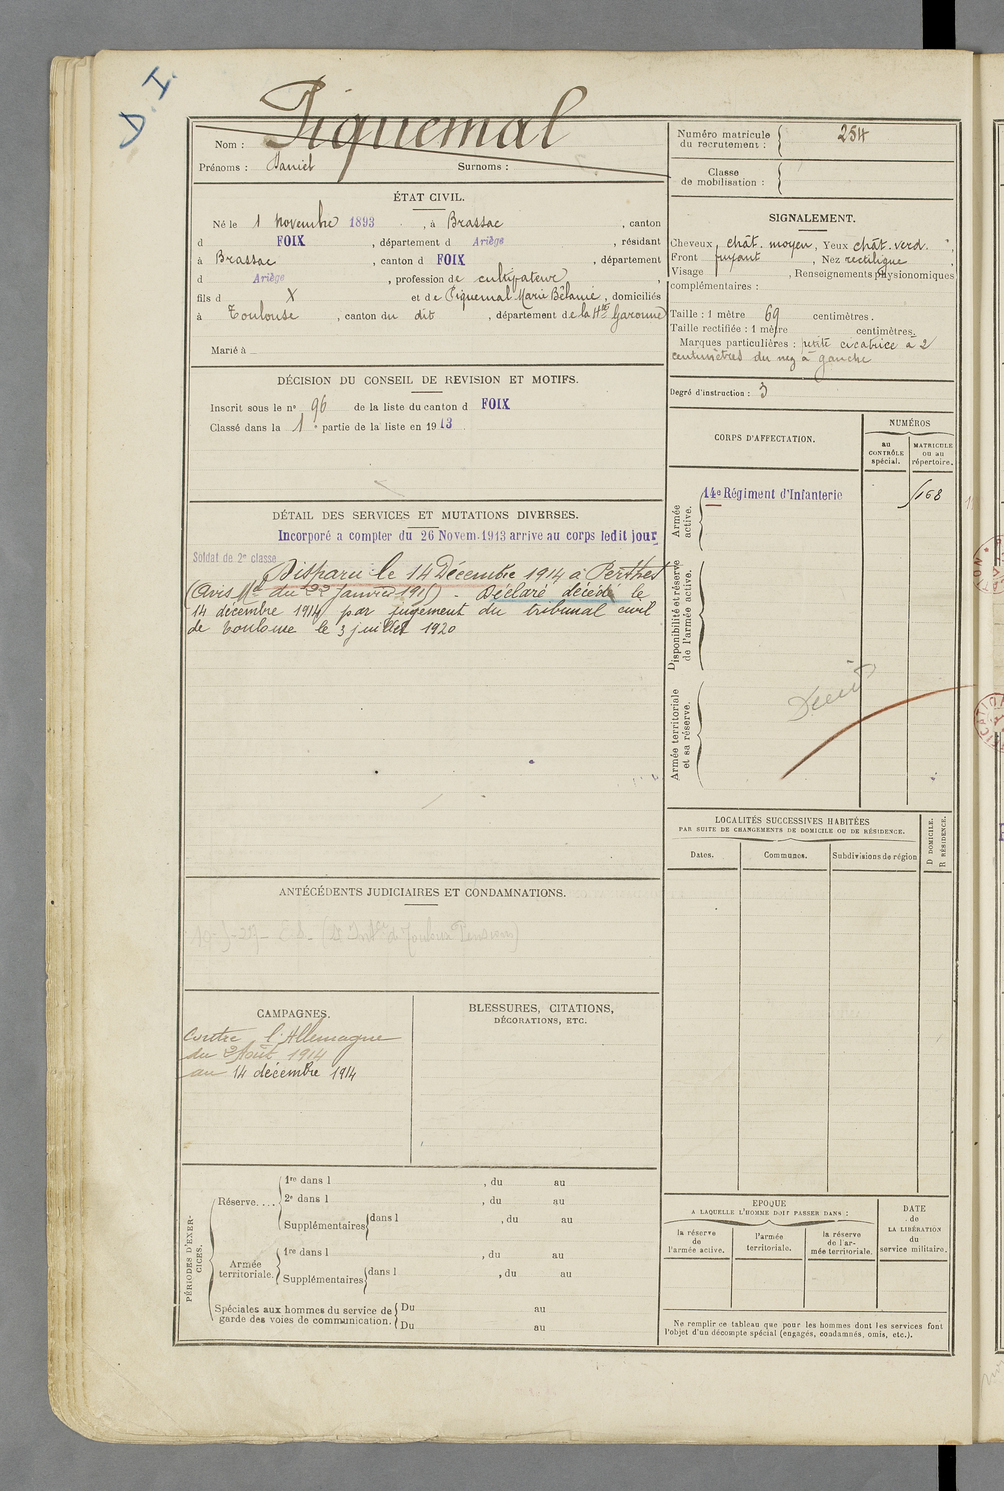 D. I.
Piquemal
Nom :
Prénoms : Daniel Surnoms :
Numéro matricule du recrutement : 254
Classe de mobilisation :
ÉTAT CIVIL.
Né le 1 novembre 1893, à Brassac, canton
d FOIX, département d Ariège, résidant
à Brassac, canton d FOIX, département
d Ariège, profession de cultivateur
fils d X et de Piquemal Marie, domiciliés
à Toulouse, canton du dit, département de la Hte Garonne
Marié à
SIGNALEMENT.
Cheveux chât. moyen, Yeux chât. verd.
Front fuyant, Nez rectiligne
Visage , Renseignements physionomiques
complémentaires :
Taille : 1 mètre 69 centimètres.
Taille rectifiée : 1 mètre centimètres.
Marques particulières : petite cicatrice à 2
centimètres du nez à gauche
Degré d'instruction : 3
DÉCISION DU CONSEIL DE REVISION ET MOTIFS.
Inscrit sous le n° 96 de la liste du canton d FOIX
Classé dans la 1e partie de la liste en 1913.
DÉTAIL DES SERVICES ET MUTATIONS DIVERSES.
Incorporé a compter du 26 Novem. 1913 arrive au corps ledit jour
Soldat de 2e classe
Disparu le 14 Décembre 1914 à Perthes
(Avis Mel du 22 Janvier 1915). Déclaré décédé le
14 décembre 1914 par jugement du tribunal civil
de Toulouse le 3 juillet 1920
CORPS D'AFFECTATION.
NUMÉROS
au CONTRÔLE spécial.
MATRICULE ou au répertoire.
Armée active.
14e Régiment d'Infanterie
168
Disponibilité et réserve de l'armée active.
Armée territoriale et sa réserve.
LOCALITÉS SUCCESSIVES HABITÉES
PAR SUITE DE CHANGEMENTS DE DOMICILE OU DE RÉSIDENCE.
Dates.
Communes.
Subdivisions de région
D DOMICILE.
R RÉSIDENCE.
ANTÉCÉDENTS JUDICIAIRES ET CONDAMNATIONS.
CAMPAGNES.
Contre l'Allemagne
du 2 Août 1914
au 14 décembre 1914
BLESSURES, CITATIONS,
DÉCORATIONS, ETC.
PÉRIODES D'EXERCICES.
Réserve....
1re dans l , du au
2e dans l , du au
Supplémentaires dans l , du au
Armée territoriale.
1re dans l , du au
Supplémentaires dans l , du au
Spéciales aux hommes du service de
garde des voies de communication.
Du au
Du au
EPOQUE
A LAQUELLE L'HOMME DOIT PASSER DANS :
la réserve de l'armée active.
l'armée territoriale.
la réserve de l'armée territoriale.
DATE de LA LIBÉRATION du service militaire.
Ne remplir ce tableau que pour les hommes dont les services font
l'objet d'un décompte spécial (engagés, condamnés, omis, etc.).